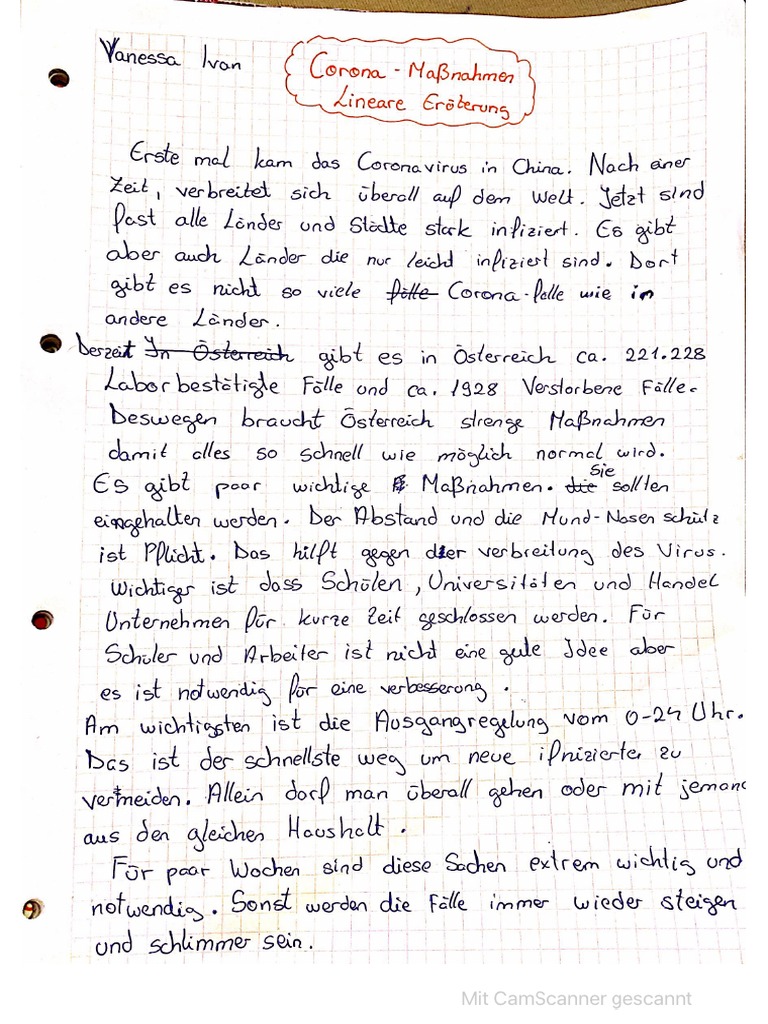 Vanessa Ivan
Corona - Maßnahmen
Lineare Eröterung
Erste mal kam das Coronavirus in China. Nach einer
Zeit, verbreitet sich überall auf dem Welt. Jetzt sind
fast alle Länder und Städte stark infiziert. Es gibt
aber auch Länder die nur leicht infiziert sind. Dort
gibt es nicht so viele fälle Corona-fälle wie in
andere Länder.
Derzeit In Österreich gibt es in Österreich ca. 221.228
Labor bestätigte Fälle und ca. 1928 Verstorbene Fälle.
Deswegen braucht Österreich strenge Maßnahmen
damit alles so schnell wie möglich normal wird.
Es gibt paar wichtige Maßnahmen. die Sie sollten
eingehalten werden. Der Abstand und die Mund-Nasen schutz
ist Pflicht. Das hilft gegen der verbreitung des Virus.
Wichtiger ist dass Schülen, Universitäten und Handel
Unternehmen für kurze Zeit geschlossen werden. Für
Schüler und Arbeiter ist nicht eine gute Idee aber
es ist notwendig für eine verbesserung.
Am wichtigsten ist die Ausgangregelung vom 0-24 Uhr.
Das ist der schnellste weg um neue ifnizierte zu
vermeiden. Allein darf man überall gehen oder mit jemand
aus den gleichen Haushalt.
Für paar Wochen sind diese Sachen extrem wichtig und
notwendig. Sonst werden die Fälle immer wieder steigen
und schlimmer sein.
Mit CamScanner gescannt